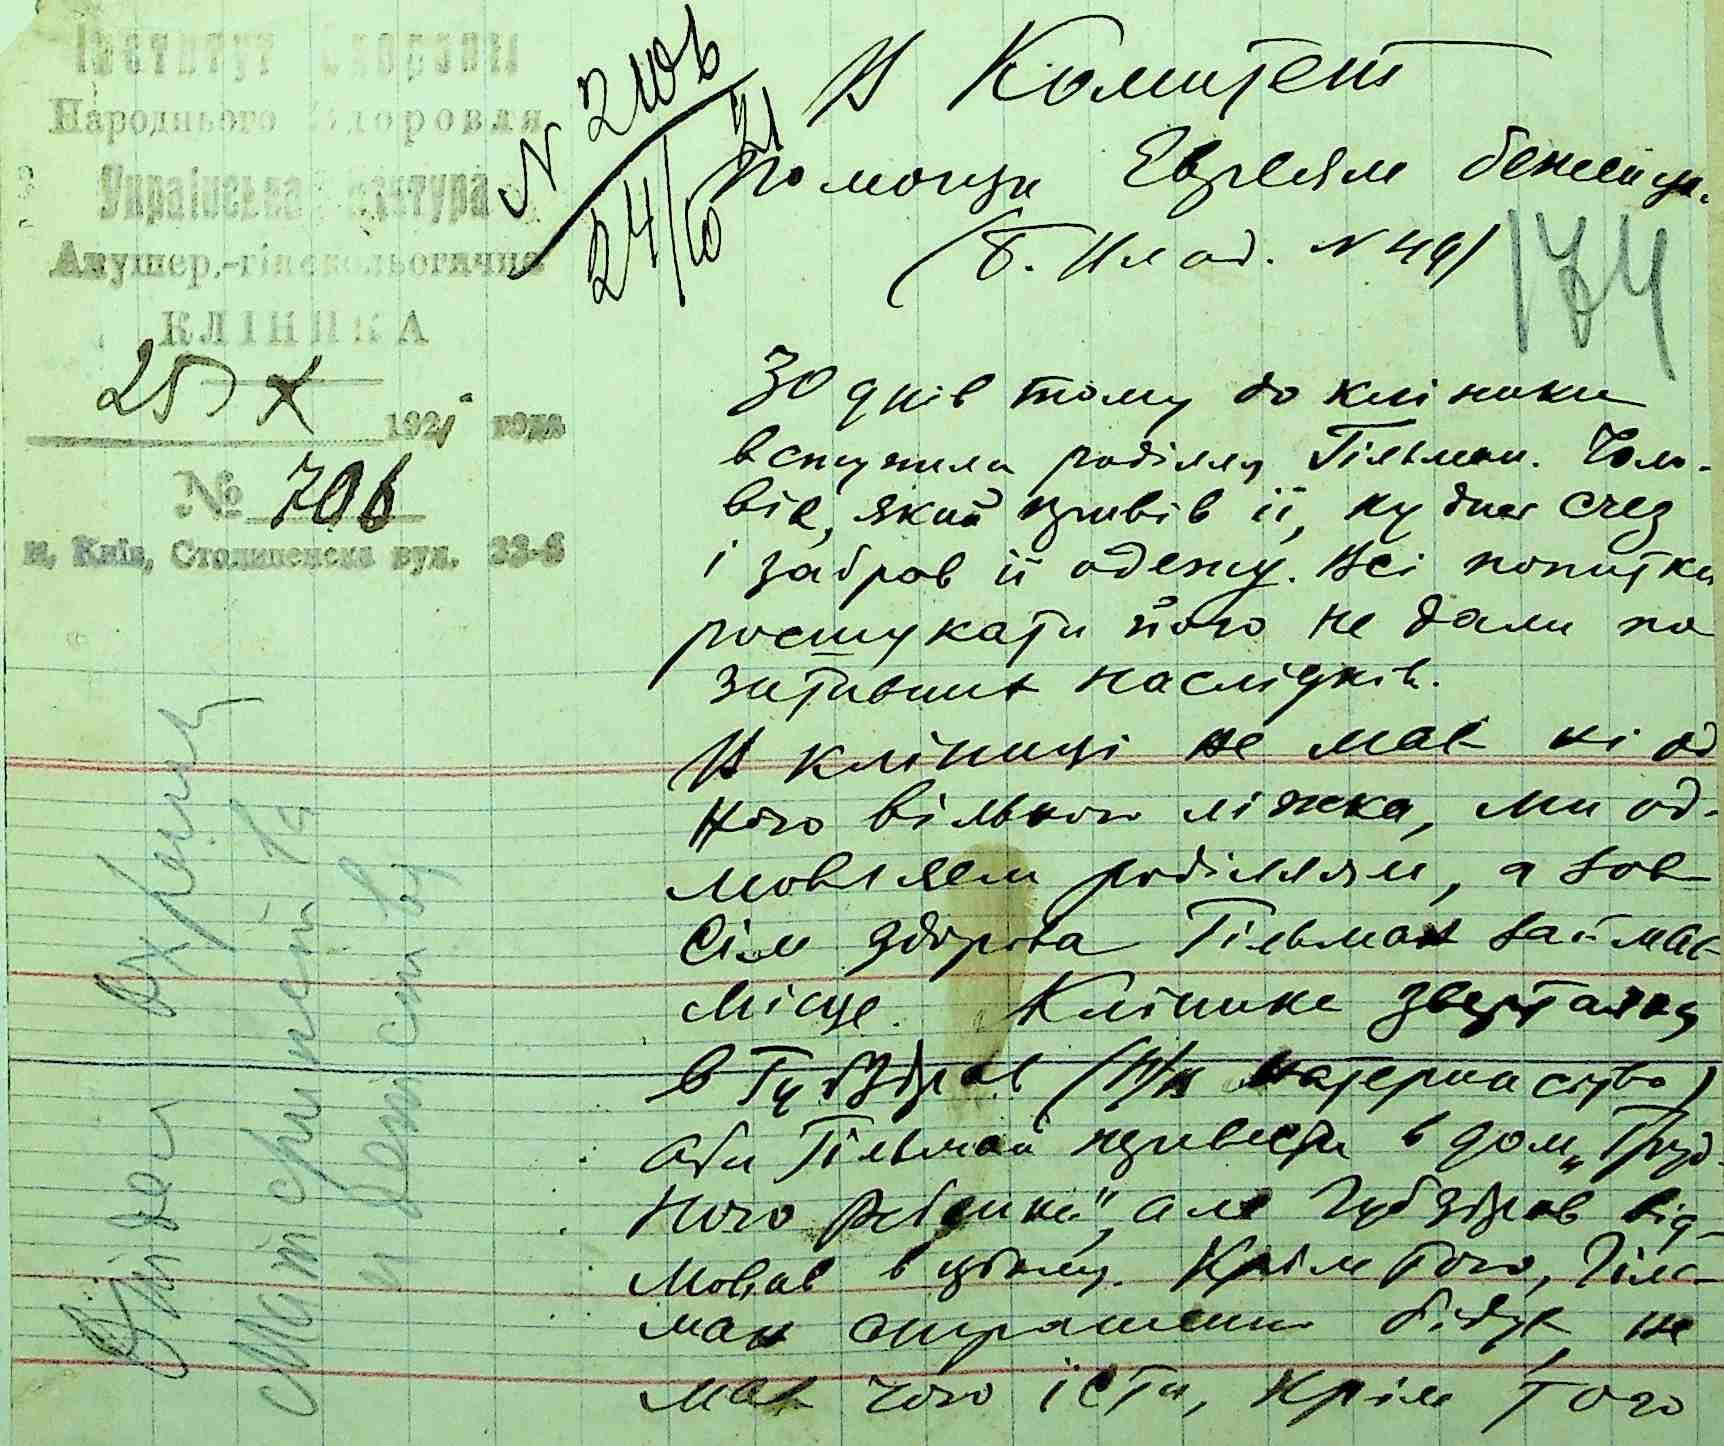 Інститут Охорони
Народнього Здоровля
Українська
Акушер.-гінекольогична
КЛІНІКА
25 X 1921 года
№ 706
м. Київ, Столипенска вул. 33-6
N 2106
24/X 21
В Комитет
помощи Евреям беженцам
(Б. Влад. N 49)
174
30 днів тому до клініки
вступила роділля Гільман. Чоло-
вік, який привів її, кудись счез
і забрав її одежу. Всі попитки
росшукати його не дали по
зитивних наслідків.
В клініці не має ні од
ного вільного ліжка, ми од-
мовляєм роділлям, а зов
сім здорова Гільман займає
місце. Клініка звертались
в Губздрав (П/в материнства)
аби Гільман привести в дом „Груд-
ного ребенка", але Губздрав від-
мовив в цьому. Крім того, Гіль-
ман страшенно бідує, не
має чого їсти, крім того
Отдел Охраны
Материнства
и Детства